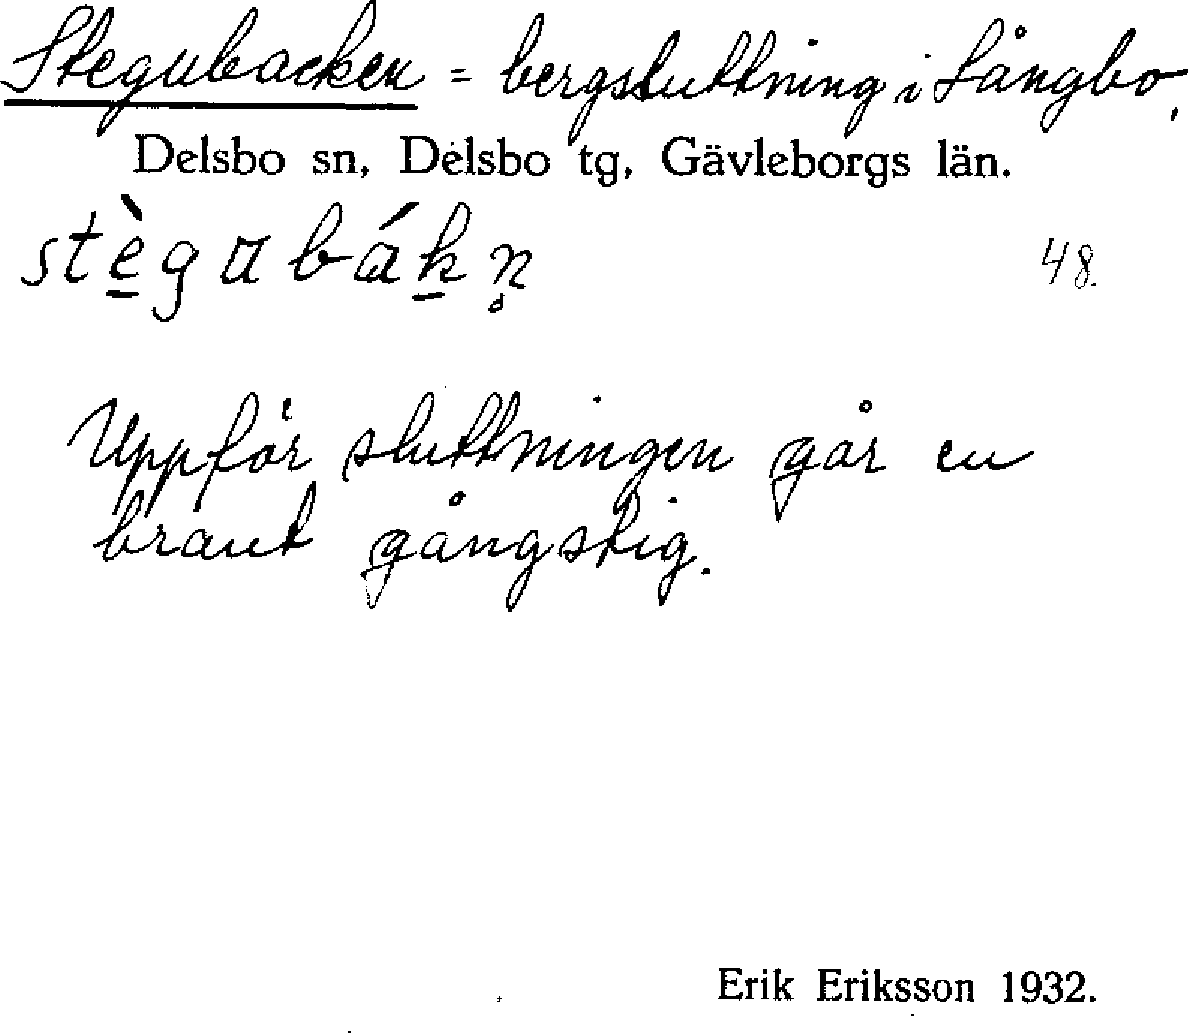 Stegubacken = bergsluttning i Långbo,
Delsbo sn, Delsbo tg, Gävleborgs län.
stè̠gɑbák̠n̥ 48.
Uppför sluttningen går en
brant gångstig.
Erik Eriksson 1932.